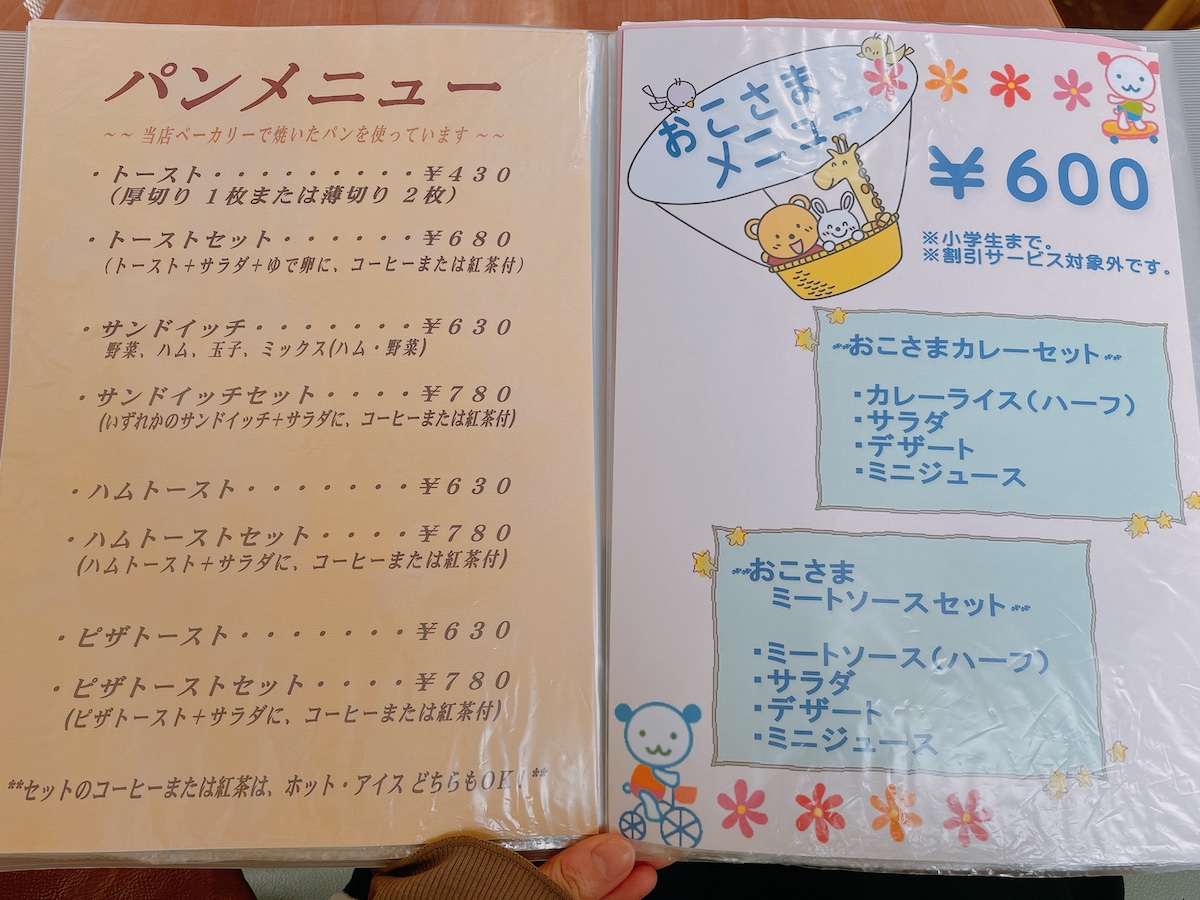 パンメニュー
~~ 当店ベーカリーで焼いたパンを使っています ~~
・トースト・・・・・・・・・¥430
(厚切り 1枚または薄切り 2枚)
・トーストセット・・・・・・¥680
(トースト+サラダ+ゆで卵に、コーヒーまたは紅茶付)
・サンドイッチ・・・・・・・¥630
野菜、ハム、玉子、ミックス(ハム・野菜)
・サンドイッチセット・・・・¥780
(いずれかのサンドイッチ+サラダに、コーヒーまたは紅茶付)
・ハムトースト・・・・・・・¥630
・ハムトーストセット・・・・¥780
(ハムトースト+サラダに、コーヒーまたは紅茶付)
・ピザトースト・・・・・・・¥630
・ピザトーストセット・・・・¥780
(ピザトースト+サラダに、コーヒーまたは紅茶付)
**セットのコーヒーまたは紅茶は、ホット・アイス どちらもOK!**
おこさま
メニュー
¥600
※小学生まで。
※割引サービス対象外です。
おこさまカレーセット
・カレーライス(ハーフ)
・サラダ
・デザート
・ミニジュース
おこさま
ミートソースセット
・ミートソース(ハーフ)
・サラダ
・デザート
・ミニジュース